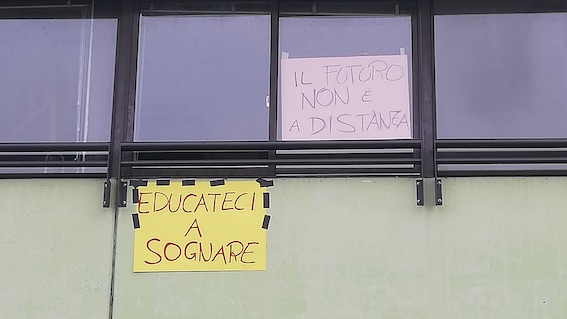 IL FUTURO
NON E
A DISTANZA
EDUCATECI
A
SOGNARE